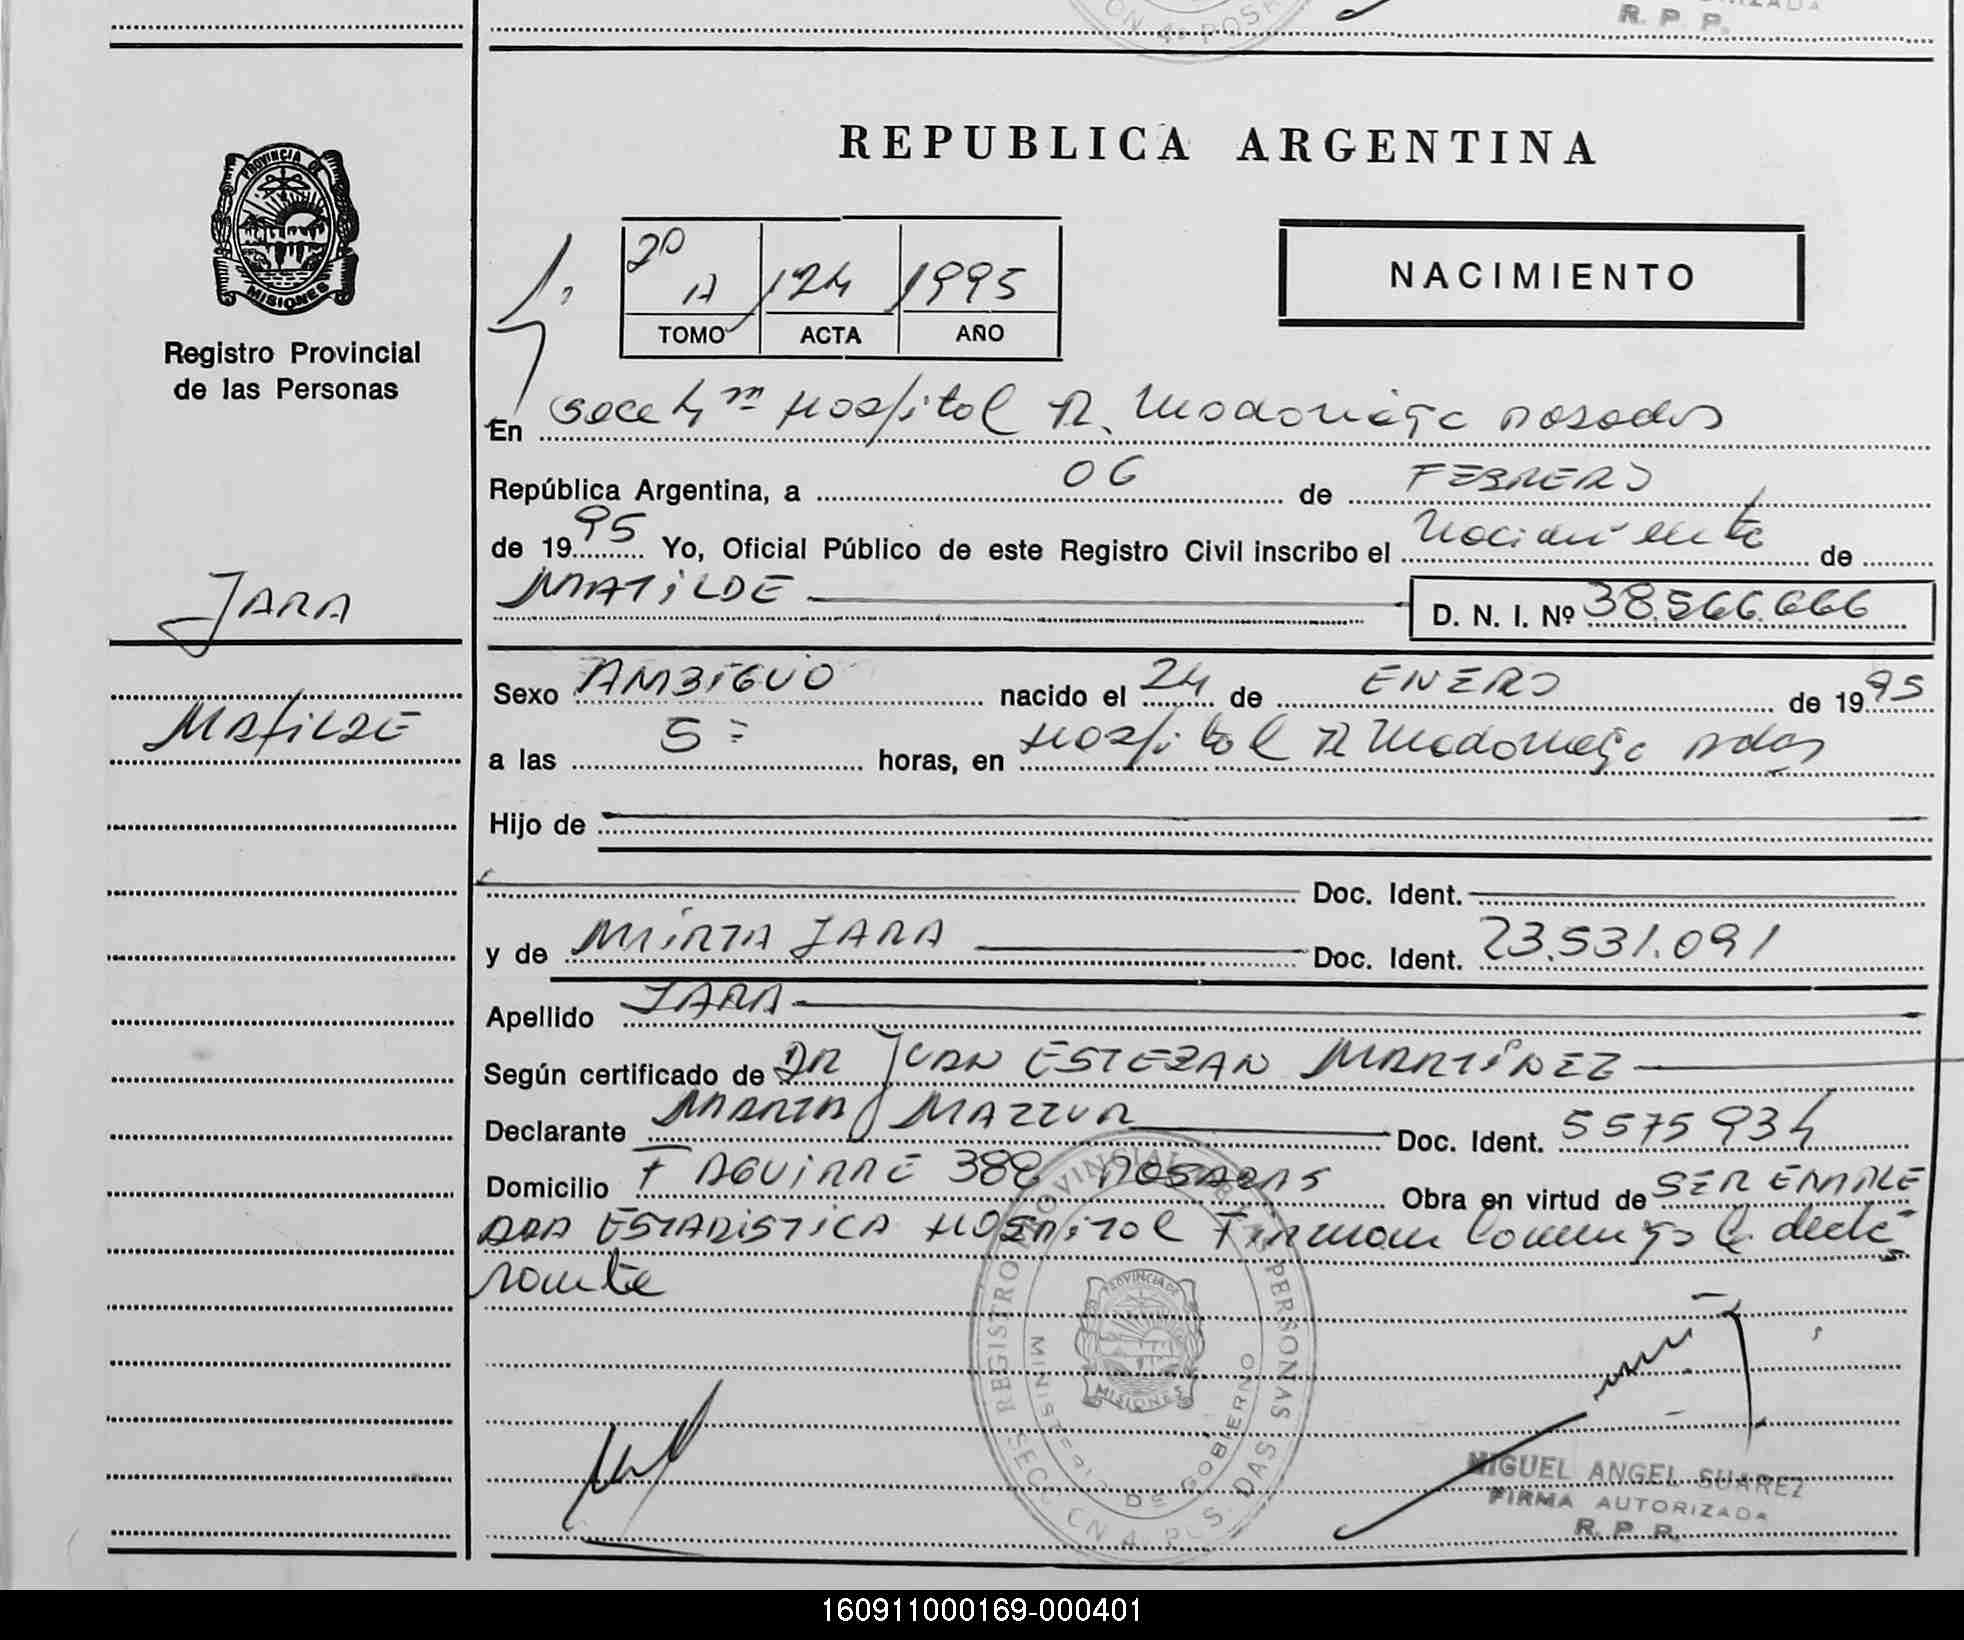 R. P. P.
REPUBLICA ARGENTINA
PROVINCIA DE
MISIONES
Registro Provincial
de las Personas
2º A 124 1995
TOMO ACTA AÑO
NACIMIENTO
En Secc 4ª Hospital R. Madariaga Posadas
República Argentina, a 06 de FEBRERO
de 1995 Yo, Oficial Público de este Registro Civil inscribo el Nacimiento de
MATILDE D. N. I. Nº 38.566.666
JARA
MATILDE
Sexo AMBIGUO nacido el 24 de ENERO de 1995
a las 5 horas, en Hospital R Madariaga Pdas
Hijo de
Doc. Ident.
y de MIRTA JARA Doc. Ident. 23.531.091
Apellido JARA
Según certificado de DR JUAN ESTEBAN MARTINEZ
Declarante MARTA J MAZZUR Doc. Ident. 5575934
Domicilio F AGUIRRE 388 POSADAS Obra en virtud de SER EMPLE
ADA ESTADISTICA HOSPITAL Firman conmigo la decla-
rante
REGISTRO PROVINCIAL DE LAS PERSONAS
MINISTERIO DE GOBIERNO
PROVINCIA DE
MISIONES
SECCION 4 POSADAS
MIGUEL ANGEL SUAREZ
FIRMA AUTORIZADA
R. P. P.
160911000169-000401